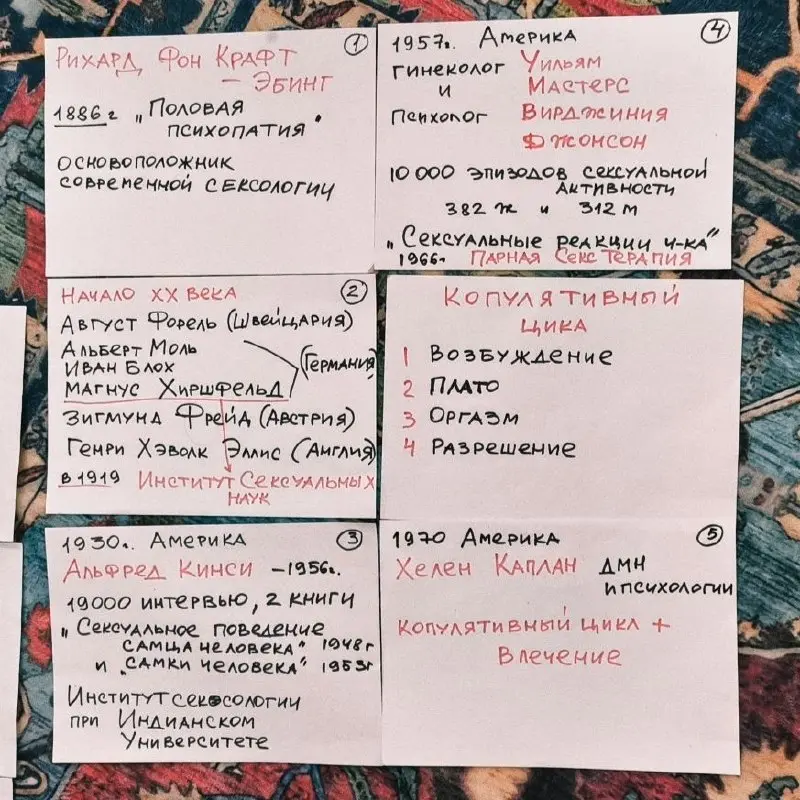 ①
Рихард фон Крафт
– Эбинг
1886г „Половая
психопатия"
основоположник
современной сексологии
②
Начало XX века
Август Форель (Швейцария)
Альберт Моль
Иван Блох
(Германия)
Магнус Хиршфельд
Зигмунд Фрейд (Австрия)
Генри Хэволк Эллис (Англия)
в 1919 Институт Сексуальных
наук
③
1930г. Америка
Альфред Кинси – 1956г.
19000 интервью, 2 книги
„Сексуальное поведение
самца человека" 1948г
и „самки человека" 1953г
Институт сексологии
при Индианском
Университете
④
1957г. Америка
гинеколог Уильям
и Мастерс
психолог Вирджиния
Джонсон
10 000 эпизодов сексуальной
активности
382 ж и 312 м
„Сексуальные реакции ч-ка"
1966г Парная Секс Терапия
Копулятивный
цикл
1 Возбуждение
2 Плато
3 Оргазм
4 Разрешение
⑤
1970 Америка
Хелен Каплан ДМН
и психологии
копулятивный цикл +
Влечение